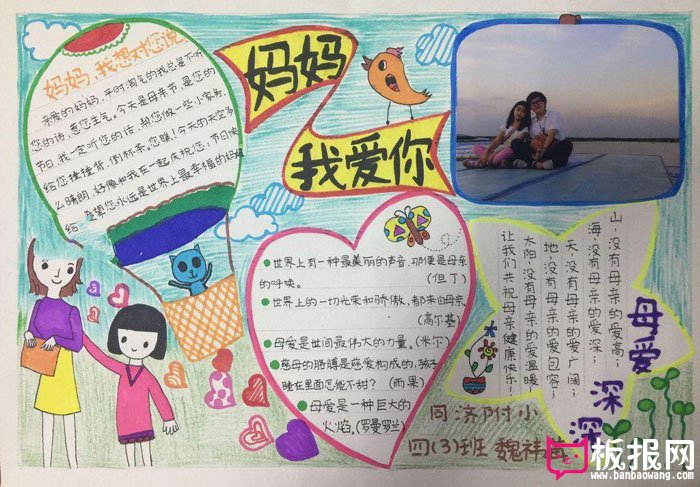 妈妈，我想对您说
亲爱的妈妈，平时淘气的我总是不听
您的话，惹您生气。今天是母亲节，是您的
节日，我一定听您的话，帮您做一些小家务，
给您捶捶背，倒杯茶。您瞧！今天的天空多
么晴朗，好像和我在一起庆祝您：节日快
希望您永远是世界上最幸福的妈妈
给
妈妈
我爱你
世界上有一种最美丽的声音，那便是母亲
的呼唤。（但丁）
世界上的一切光荣和骄傲，都来自母亲
（高尔基）
母爱是世间最伟大的力量。（米尔）
慈母的胳膊是慈爱构成的，孩子
睡在里面怎能不甜？（雨果）
母爱是一种巨大的
火焰。（罗曼罗兰）
山，没有母亲的爱高；
海，没有母亲的爱深；
天，没有母亲的爱广阔；
地，没有母亲的爱包容；
太阳，没有母亲的爱温暖
让我们共祝母亲健康快乐！
母爱
深深
同济附小
四(3)班 魏祎
板报网
www.banbaowang.com